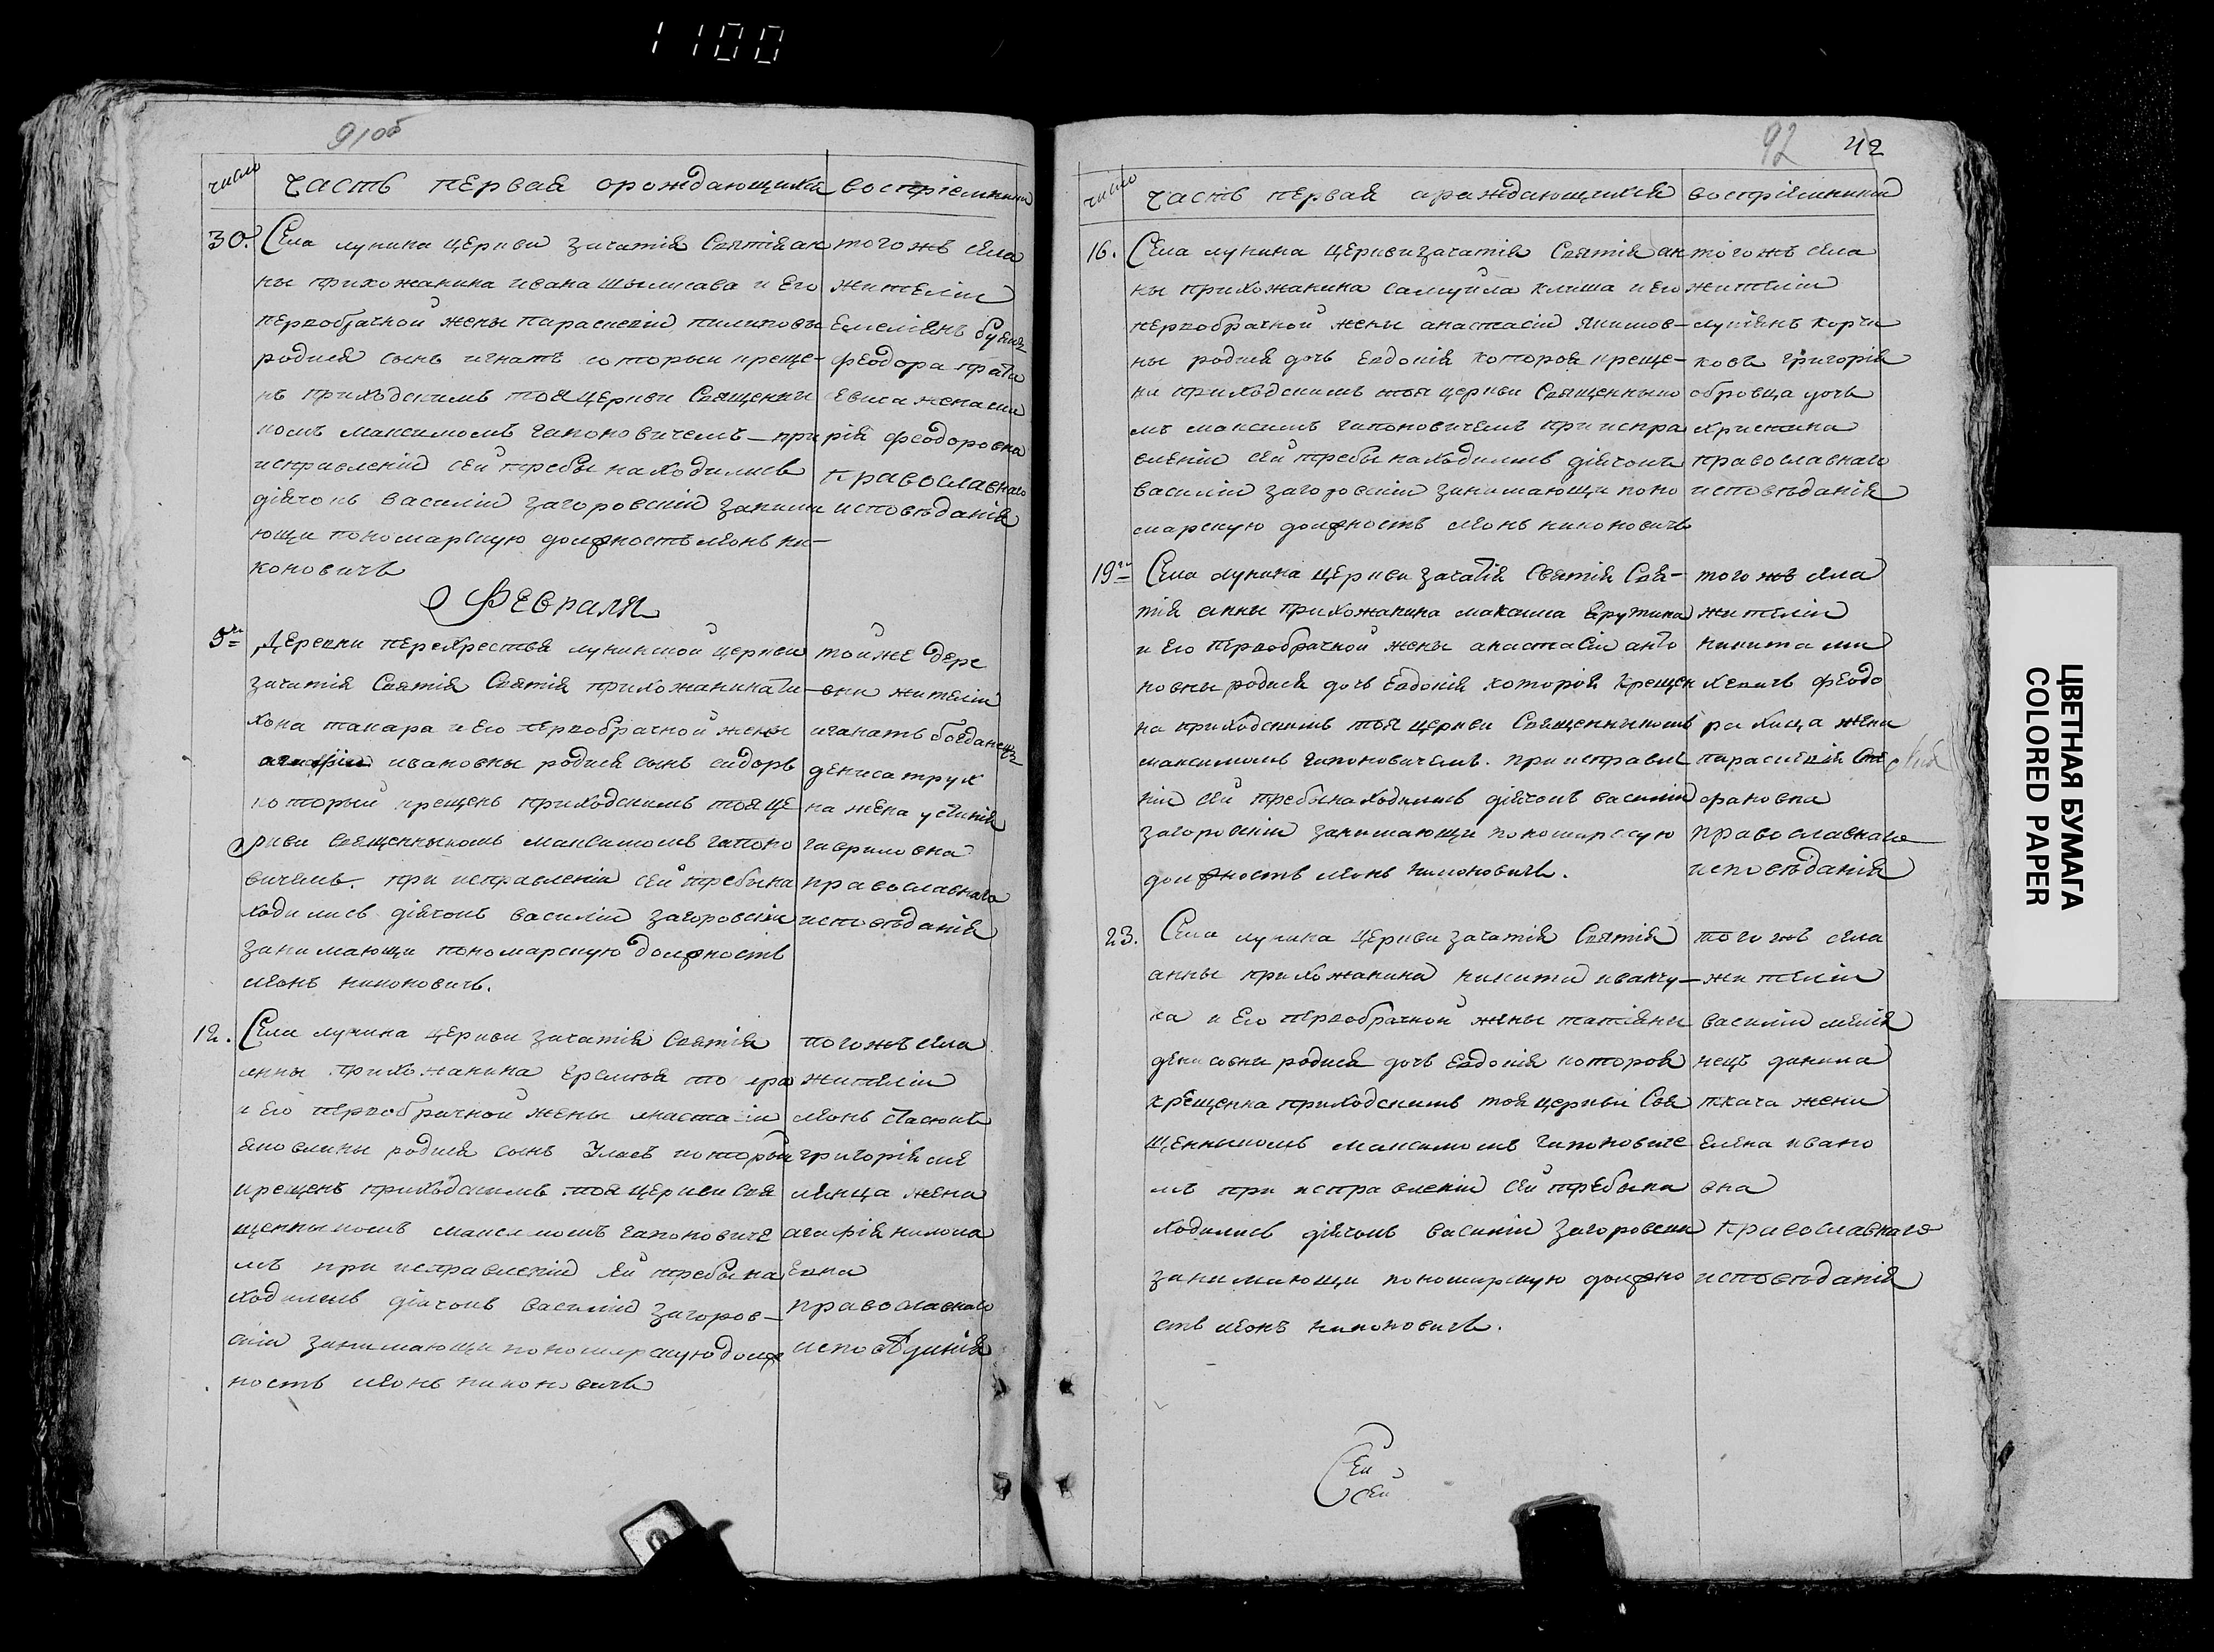 1100
91об
число
часть первая орождающихся
воспріемники
30.
Села лунина церкви зачатія Святія ан
ны прихожанина ивана и Его
первобрачной жены параскевіи пилиповы
родися сынъ игнатъ которыи креще-
нъ приходскимъ тоя церкви Священни
комъ максимомъ гапоновичемъ — при
исправленіи сей требы находились
діячокъ василіи загоровскіи занима
ющи пономарскую должность леонъ ни-
коновичъ
того жъ села
жители
Емеліянъ
феодора
жена
рія феодоровна
православнаго
исповѣданія
Февраля
5го
Деревни перехрестья лунинской церкви
зачатія Святія Святія прихожанина ти-
хона макара и его первобрачной жены
ивановны родися сынъ сидоръ
которыи крещенъ приходскимъ тоя це
ркви священникомъ максимомъ гапоно
вичемъ. при исправленіи сей требы на
ходились діячокъ василіи загоровскіи
занимающи пономарскую должность
леонъ никоновичъ.
той же дере
вни жители
игнатъ богданецъ
дениса трух
на жена устинія
гавриловна
православнаго
исповѣданія
12.
Села лунина церкви зачатія Святія
анны прихожанина
и его первобрачной жены анастасіи
родися сынъ Уласъ которыи
крещенъ приходскимъ тоя церкви свя
щенникомъ максимомъ гапоновиче
мъ при исправленіи сей требы на
ходились діячокъ василіи загоров-
скіи занимающи пономарскую долж
ность леонъ никоновичъ
того жъ села
жители
леонъ стасюкъ
григорія ме
линца жена
агафія никола
Евна
православнаго
исповѣданія
92 42
число
часть первая араждающихся
воспріемники
16.
Села лунина церкви зачатія Святія ан
ны прихожанина самуйла клиша и его
первобрачной жены анастасіи якимов-
ны родися дочь Евдокія которая креще-
на приходскимъ тоя церкви Священнико
мъ максимъ гапоновичемъ при испра
вленіи сей требы находились діячокъ
василіи загоровскіи занимающи поно
марскую должность леонъ никоновичъ
того жъ села
жители
лукіянъ корчи
ковъ григорія
обровца дочь
христина
православнаго
исповѣданія
19го
Села лунина церкви зачатія Святія Свя-
тія анны прихожанина максима врутина
и его первобрачной жены анастасіи анто
новны родися дочь Евдокія которая крещен
на приходскимъ тоя церкви Священникомъ
максимомъ гапоновичемъ. при исправле
ніи сей требы находились діячокъ василіи
загоровскіи занимающи пономарскую
должность леонъ никоновичъ.
того жъ села
жители
никита ми
хевичъ феодо
ра хица жена
параскевія
фановна
православнаго
исповѣданія
23.
Села лунина церкви зачатія Святія
анны прихожанина никити иванчу-
ка и Его первобрачной жены татіяны
денисовны родися дочь Евдокія которая
крещенна приходскимъ тоя церкви Свя
щенникомъ максимомъ гапоновиче
мъ при исправленіи сей требы на
ходились діячокъ василіи загоровскіи
занимающи пономарскую должно
сть леонъ никоновичъ.
того жъ села
жители
василіи меля
нецъ данила
ткача жена
Елена ивано
вна
православнаго
исповѣданія
Сей
сей
ЦВЕТНАЯ БУМАГА
COLORED PAPER